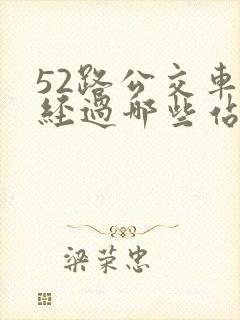 52路公交車
經過哪些佔
梁荣忠